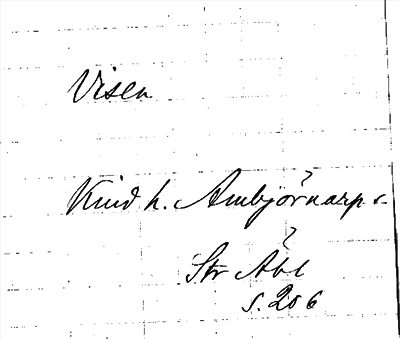 Visen
Kind h. Ambjörnarp s.
Str Åbl
s. 206